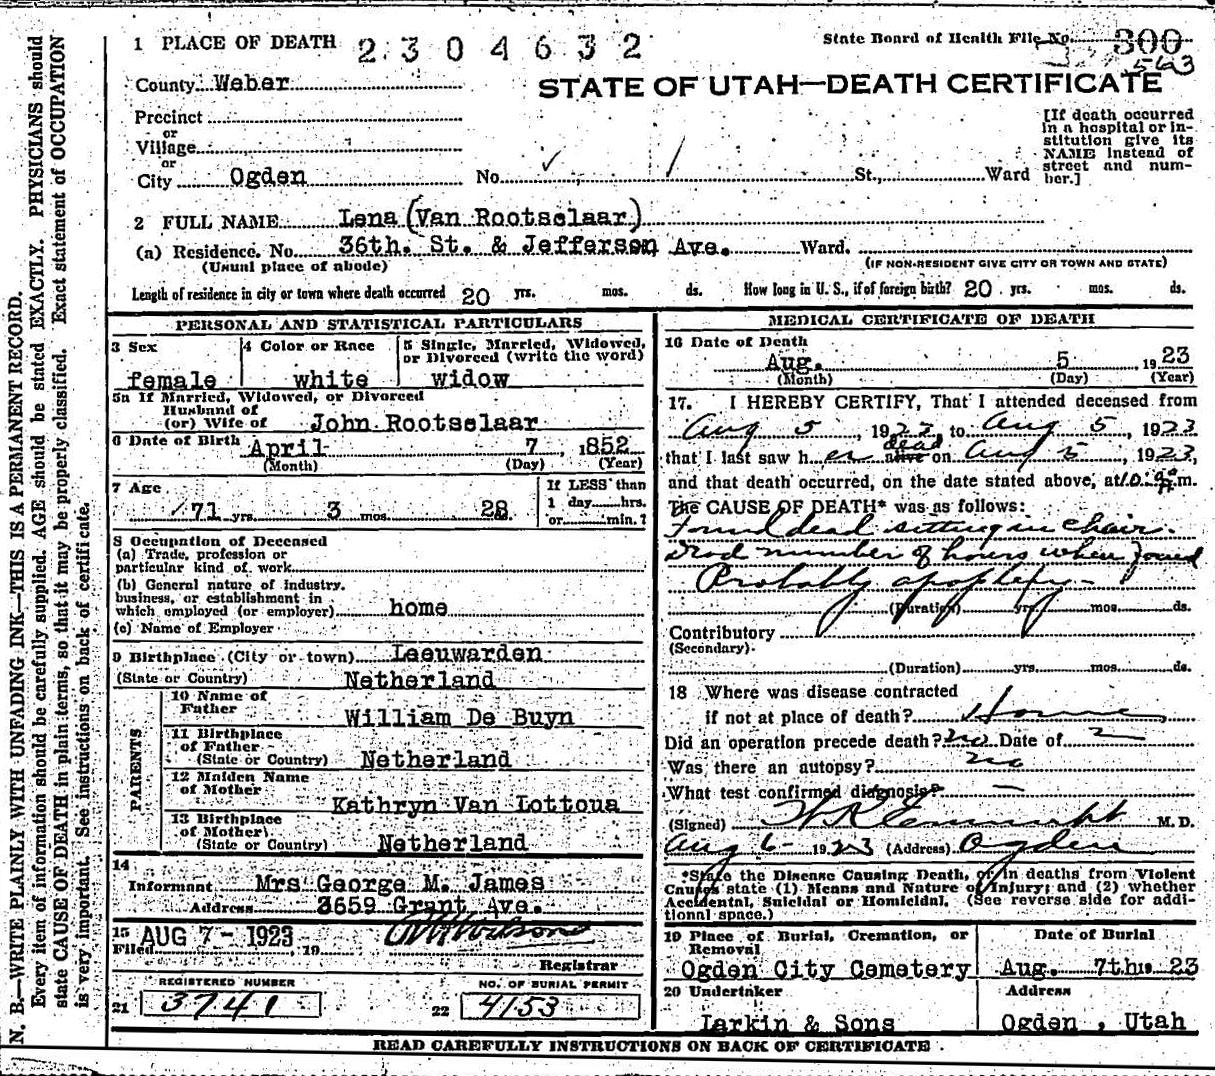 N. B.—WRITE PLAINLY WITH UNFADING INK—THIS IS A PERMANENT RECORD.
Every item of information should be carefully supplied. AGE should be stated EXACTLY. PHYSICIANS should
state CAUSE OF DEATH in plain terms, so that it may be properly classified. Exact statement of OCCUPATION
is very important. See instructions on back of certificate.
1 PLACE OF DEATH 2304632
State Board of Health File No. 300
563
County Weber
STATE OF UTAH—DEATH CERTIFICATE
Precinct
or
Village
or
City Ogden No. St., Ward
[If death occurred
in a hospital or in-
stitution give its
NAME instead of
street and num-
ber.]
2 FULL NAME Lena (Van Rootselaar)
(a) Residence. No. 36th. St. & Jefferson Ave. Ward.
(Usual place of abode) (IF NON-RESIDENT GIVE CITY OR TOWN AND STATE)
Length of residence in city or town where death occurred 20 yrs. mos. ds. How long in U. S., if of foreign birth? 20 yrs. mos. ds.
PERSONAL AND STATISTICAL PARTICULARS
3 Sex female
4 Color or Race white
5 Single, Married, Widowed,
or Divorced (write the word)
widow
5a If Married, Widowed, or Divorced
Husband of
(or) Wife of John Rootselaar
6 Date of Birth April 7, 1852
(Month) (Day) (Year)
7 Age 71 yrs. 3 mos. 28
If LESS than
1 day hrs.
or min.?
8 Occupation of Deceased
(a) Trade, profession or
particular kind of work
(b) General nature of industry,
business, or establishment in
which employed (or employer) home
(c) Name of Employer
9 Birthplace (City or town) Leeuwarden
(State or Country) Netherland
PARENTS
10 Name of
Father William De Buyn
11 Birthplace
of Father
(State or Country) Netherland
12 Maiden Name
of Mother Kathryn Van Lottoua
13 Birthplace
of Mother
(State or Country) Netherland
14
Informant Mrs George M. James
Address 3659 Grant Ave.
15 AUG 7-1923
Filed , 19
Registrar
REGISTERED NUMBER
21 3741
NO. OF BURIAL PERMIT
22 4153
MEDICAL CERTIFICATE OF DEATH
16 Date of Death
Aug. 5, 1923
(Month) (Day) (Year)
17. I HEREBY CERTIFY, That I attended deceased from
Aug 5, 1923, to Aug 5, 1923
that I last saw her dead alive on Aug 5, 1923,
and that death occurred, on the date stated above, at 10 m.
The CAUSE OF DEATH* was as follows:
Found dead sitting in chair.
Dead number of hours when found
Probably apoplexy-
(Duration) yrs. mos. ds.
Contributory
(Secondary)
(Duration) yrs. mos. ds.
18 Where was disease contracted
if not at place of death? Home
Did an operation precede death? no Date of
Was there an autopsy? no
What test confirmed diagnosis? —
(Signed) M. D.
Aug 6- 1923 (Address) Ogden
*State the Disease Causing Death, or in deaths from Violent
Causes state (1) Means and Nature of Injury; and (2) whether
Accidental, Suicidal or Homicidal. (See reverse side for addi-
tional space.)
19 Place of Burial, Cremation, or
Removal
Ogden City Cemetery
Date of Burial
Aug. 7th. 23
20 Undertaker
Larkin & Sons
Address
Ogden, Utah
READ CAREFULLY INSTRUCTIONS ON BACK OF CERTIFICATE.